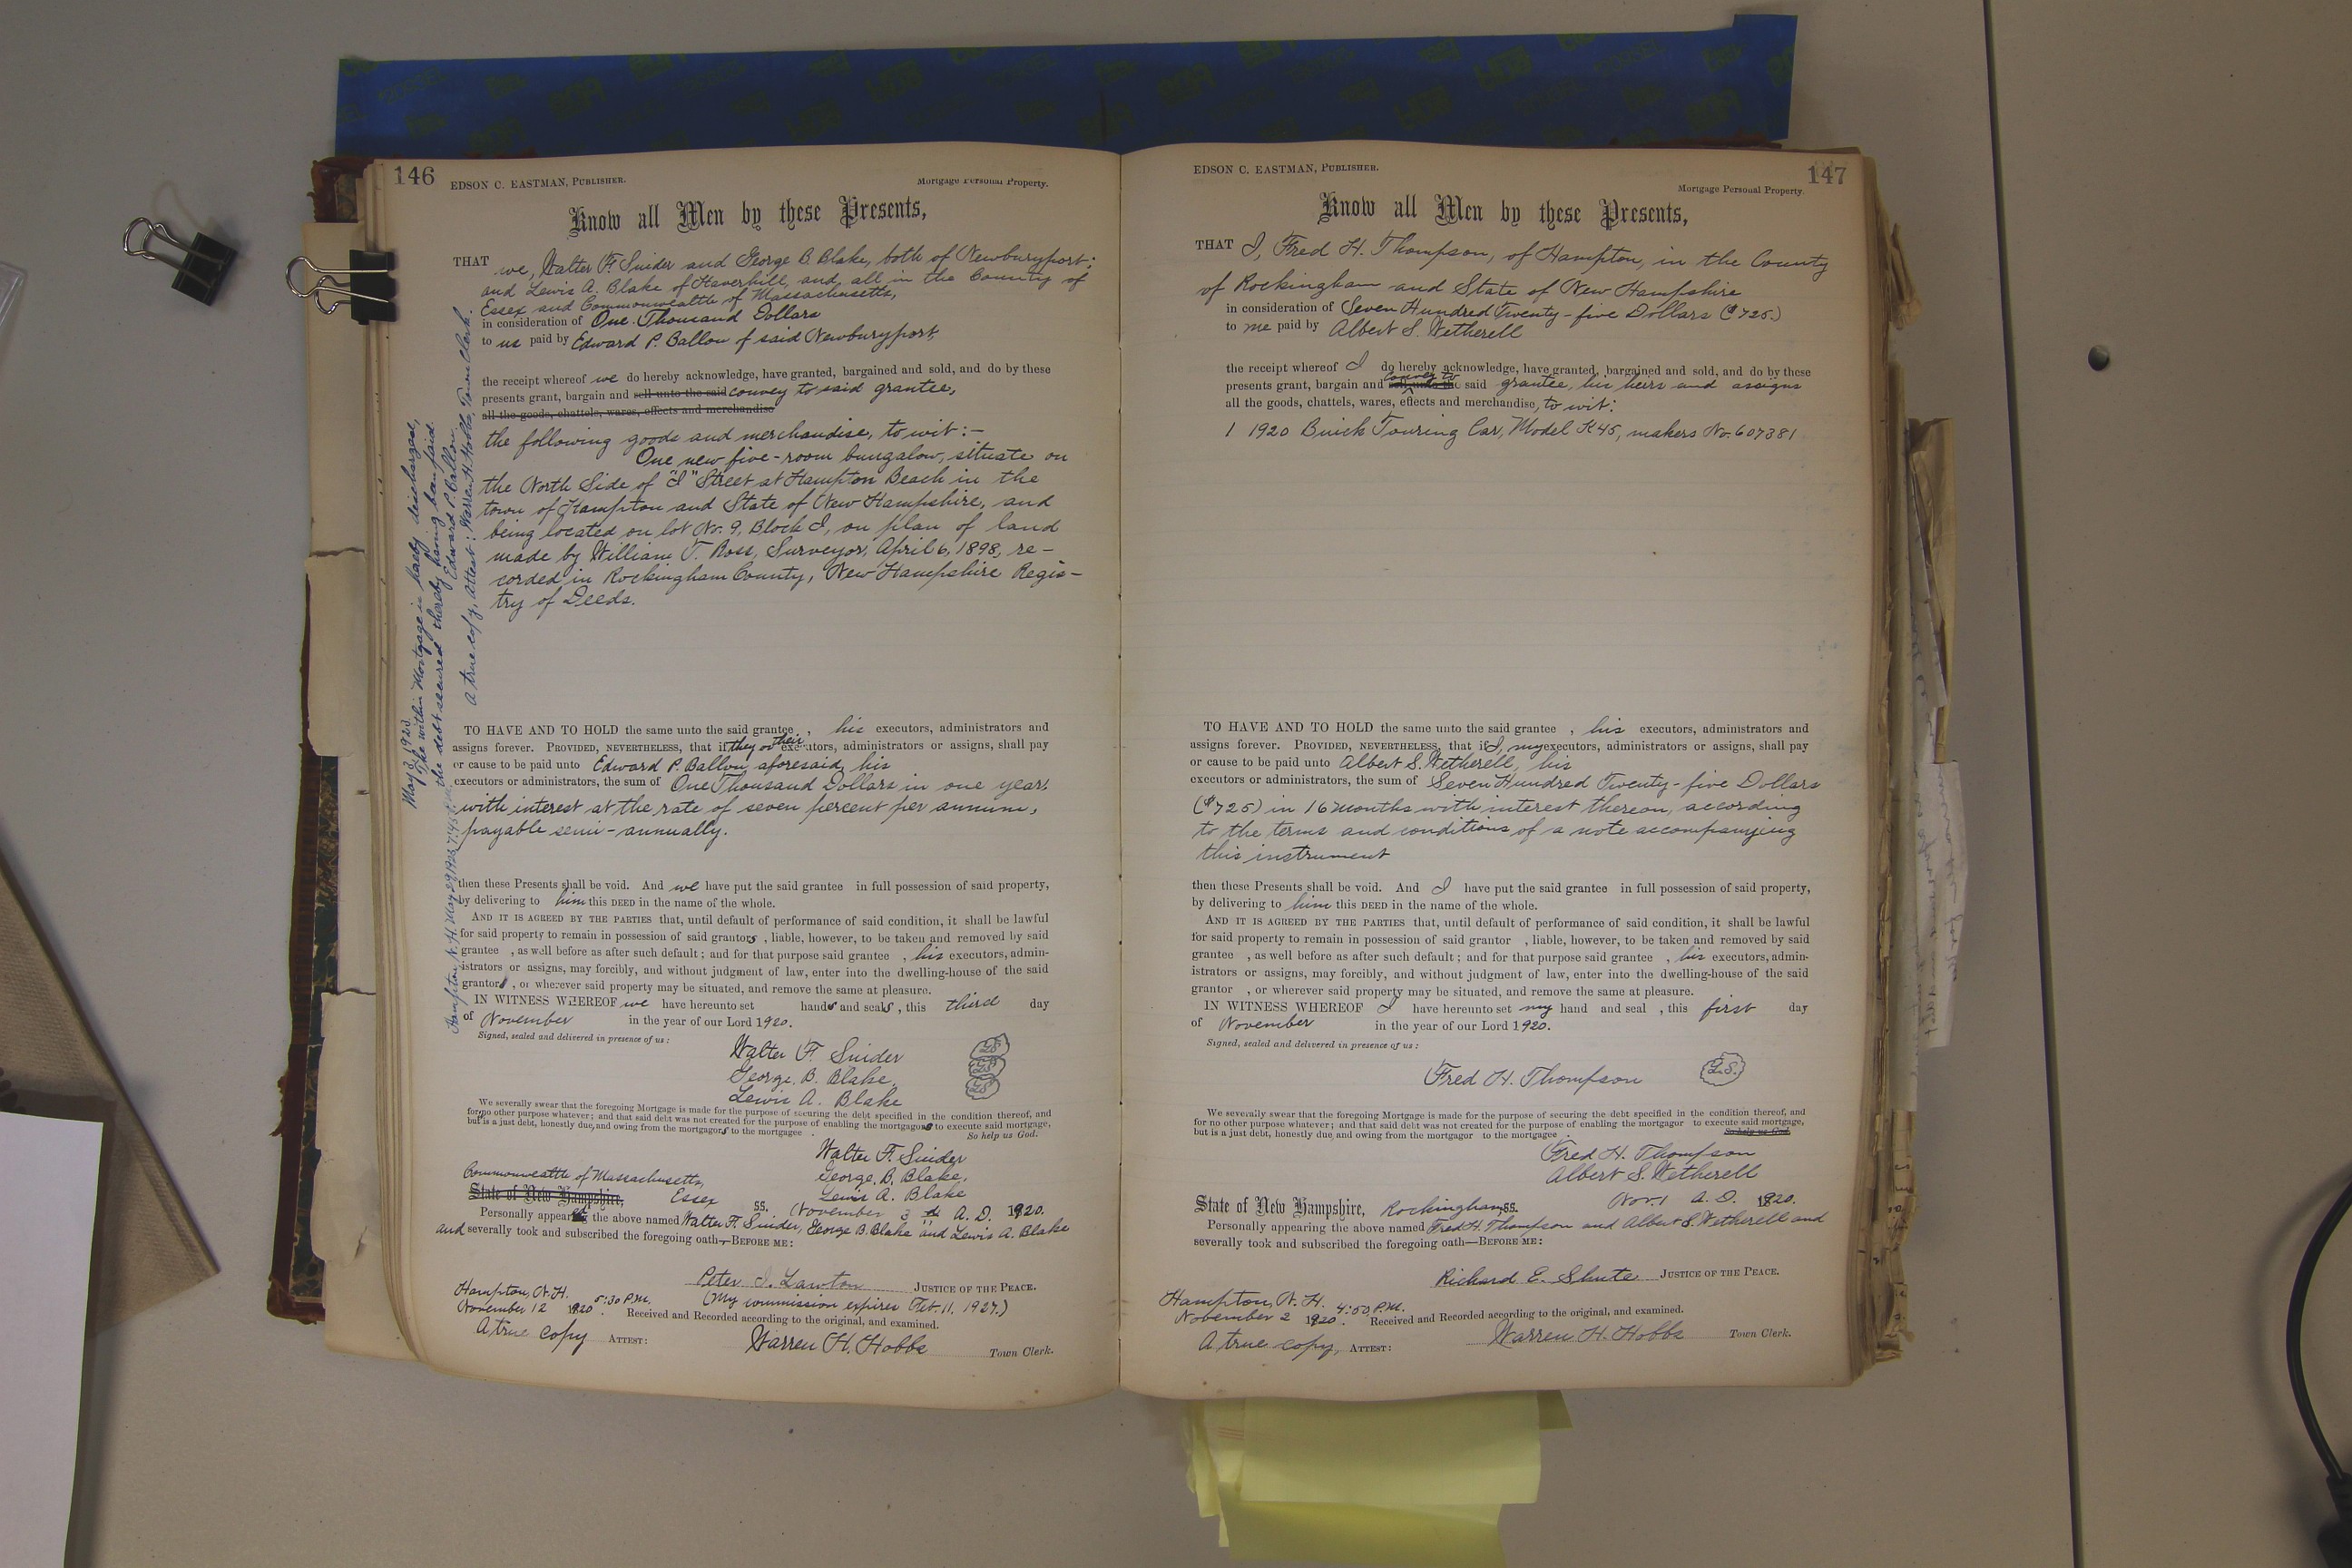 146
EDSON C. EASTMAN, PUBLISHER.
Mortgage Personal Property.
Know all Men by these Presents,
THAT we, Walter F. Snider and George B. Blake, both of Newburyport;
and Lewis A. Blake of Haverhill, and, all in the County of
Essex and Commonwealth of Massachusetts,
in consideration of One Thousand Dollars
to us paid by Edward P. Ballou of said Newburyport,
the receipt whereof we do hereby acknowledge, have granted, bargained and sold, and do by these
presents grant, bargain and sell unto the said convey to said grantee,
all the goods, chattels, wares, effects and merchandise
the following goods and merchandise, to wit:-
One new five-room bungalow, situate on
the North Side of "I" Street at Hampton Beach in the
town of Hampton and State of New Hampshire, and
being located on lot No. 9, Block I, on plan of land
made by William T. Ross, Surveyor, April 6, 1898, re-
corded in Rockingham County, New Hampshire Regis-
try of Deeds.
TO HAVE AND TO HOLD the same unto the said grantee , his executors, administrators and
assigns forever. PROVIDED, NEVERTHELESS, that if they or their executors, administrators or assigns, shall pay
or cause to be paid unto Edward P. Ballou aforesaid, his
executors or administrators, the sum of One Thousand Dollars in one year,
with interest at the rate of seven percent per annum,
payable semi-annually.
then these Presents shall be void. And we have put the said grantee in full possession of said property,
by delivering to him this DEED in the name of the whole.
AND IT IS AGREED BY THE PARTIES that, until default of performance of said condition, it shall be lawful
for said property to remain in possession of said grantors , liable, however, to be taken and removed by said
grantee , as well before as after such default; and for that purpose said grantee , his executors, admin-
istrators or assigns, may forcibly, and without judgment of law, enter into the dwelling-house of the said
grantors , or wherever said property may be situated, and remove the same at pleasure.
IN WITNESS WHEREOF we have hereunto set hands and seals , this third day
of November in the year of our Lord 1920.
Signed, sealed and delivered in presence of us:
Walter F. Snider LS
George. B. Blake, LS
Lewis A. Blake LS
We severally swear that the foregoing Mortgage is made for the purpose of securing the debt specified in the condition thereof, and
for no other purpose whatever; and that said debt was not created for the purpose of enabling the mortgagors to execute said mortgage,
but is a just debt, honestly due, and owing from the mortgagors to the mortgagee .
So help us God.
Walter F. Snider
George. B. Blake,
Lewis A. Blake
Commonwealth of Massachusetts,
State of New Hampshire, Essex SS. November 3 A. D. 1920.
Personally appeared the above named Walter F. Snider, George B. Blake and Lewis A. Blake
and severally took and subscribed the foregoing oath—BEFORE ME:
Peter I. Lawton JUSTICE OF THE PEACE.
(My commission expires Feb. 11, 1927.)
Hampton, N. H.
November 12 1920 5:30 P.M. Received and Recorded according to the original, and examined.
A true copy ATTEST: Warren H. Hobbs Town Clerk.
May 3, 1923.
The within Mortgage is hereby discharged,
the debt secured thereby having been paid.
Edward P. Ballou
A true copy, Attest: Warren H. Hobbs, Town Clerk.
Hampton N. H. May 29 1923 7:45
147
EDSON C. EASTMAN, PUBLISHER.
Mortgage Personal Property.
Know all Men by these Presents,
THAT I, Fred H. Thompson, of Hampton, in the County
of Rockingham and State of New Hampshire
in consideration of Seven Hundred Twenty-five Dollars ($725.)
to me paid by Albert S. Wetherell
the receipt whereof I do hereby acknowledge, have granted, bargained and sold, and do by these
presents grant, bargain and convey to sell unto the said grantee, his heirs and assigns
all the goods, chattels, wares, effects and merchandise, to wit:
1 1920 Buick Touring Car, Model K45, makers No. 607381
TO HAVE AND TO HOLD the same unto the said grantee , his executors, administrators and
assigns forever. PROVIDED, NEVERTHELESS, that if I, my executors, administrators or assigns, shall pay
or cause to be paid unto Albert S. Wetherell, his
executors or administrators, the sum of Seven Hundred Twenty-five Dollars
($725) in 16 months with interest thereon, according
to the terms and conditions of a note accompanying
this instrument
then these Presents shall be void. And I have put the said grantee in full possession of said property,
by delivering to him this DEED in the name of the whole.
AND IT IS AGREED BY THE PARTIES that, until default of performance of said condition, it shall be lawful
for said property to remain in possession of said grantor , liable, however, to be taken and removed by said
grantee , as well before as after such default; and for that purpose said grantee , his executors, admin-
istrators or assigns, may forcibly, and without judgment of law, enter into the dwelling-house of the said
grantor , or wherever said property may be situated, and remove the same at pleasure.
IN WITNESS WHEREOF I have hereunto set my hand and seal , this first day
of November in the year of our Lord 1920.
Signed, sealed and delivered in presence of us:
Fred H. Thompson L.S.
We severally swear that the foregoing Mortgage is made for the purpose of securing the debt specified in the condition thereof, and
for no other purpose whatever; and that said debt was not created for the purpose of enabling the mortgagor to execute said mortgage,
but is a just debt, honestly due and owing from the mortgagor to the mortgagee .
So help us God.
Fred H. Thompson
Albert S. Wetherell
State of New Hampshire, Rockingham, SS. Nov. 1 A. D. 1920.
Personally appearing the above named Fred H. Thompson and Albert S. Wetherell and
severally took and subscribed the foregoing oath—BEFORE ME:
Richard E. Shute JUSTICE OF THE PEACE.
Hampton, N. H.
November 2 1920. 4:50 P.M. Received and Recorded according to the original, and examined.
A true copy, ATTEST: Warren H. Hobbs Town Clerk.